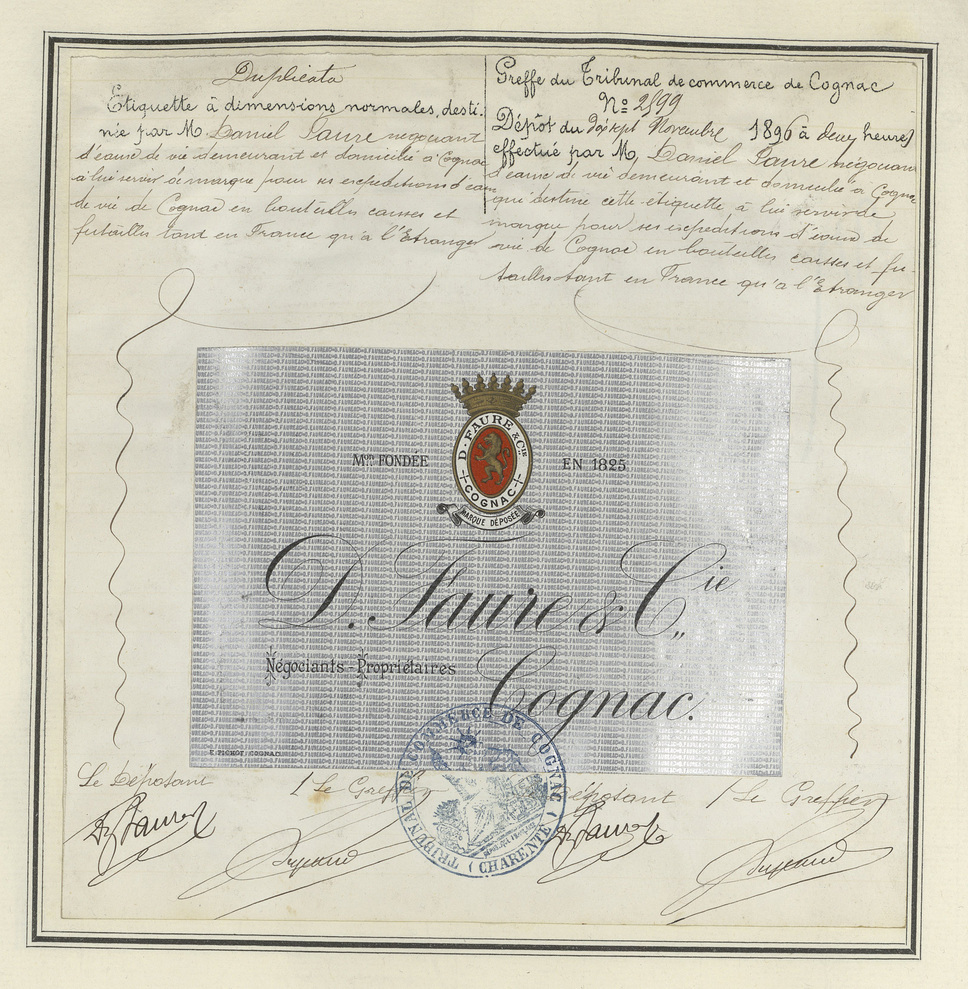 Duplicata
Etiquette à dimensions normales, desti-
née par M. Daniel Faure négociant
d'eaux de vie demeurant et domicilié à Cognac
à lui servir de marque pour ses expéditions d'eaux
de vie de Cognac en bouteilles caisses et
futailles tant en France qu'à l'Etranger
Greffe du Tribunal de commerce de Cognac
No 2899
Dépôt du dix sept Novembre 1896 à deux heures
effectué par M. Daniel Faure négociant
d'eaux de vie demeurant et domicilié à Cognac
qui destine cette étiquette à lui servir de
marque pour ses expéditions d'eaux de
vie de Cognac en bouteilles caisses et fu-
tailles tant en France qu'à l'Etranger
D. FAURE & CIE
COGNAC
MARQUE DÉPOSÉE
Mon FONDÉE EN 1825
D. Faure & Cie
Négociants-Propriétaires
Cognac.
E. PICHOT, COGNAC
Le Déposant
Le Greffier
Déposant
Le Greffier
D. Faure
D. Faure
TRIBUNAL DE COMMERCE DE COGNAC
(CHARENTE)